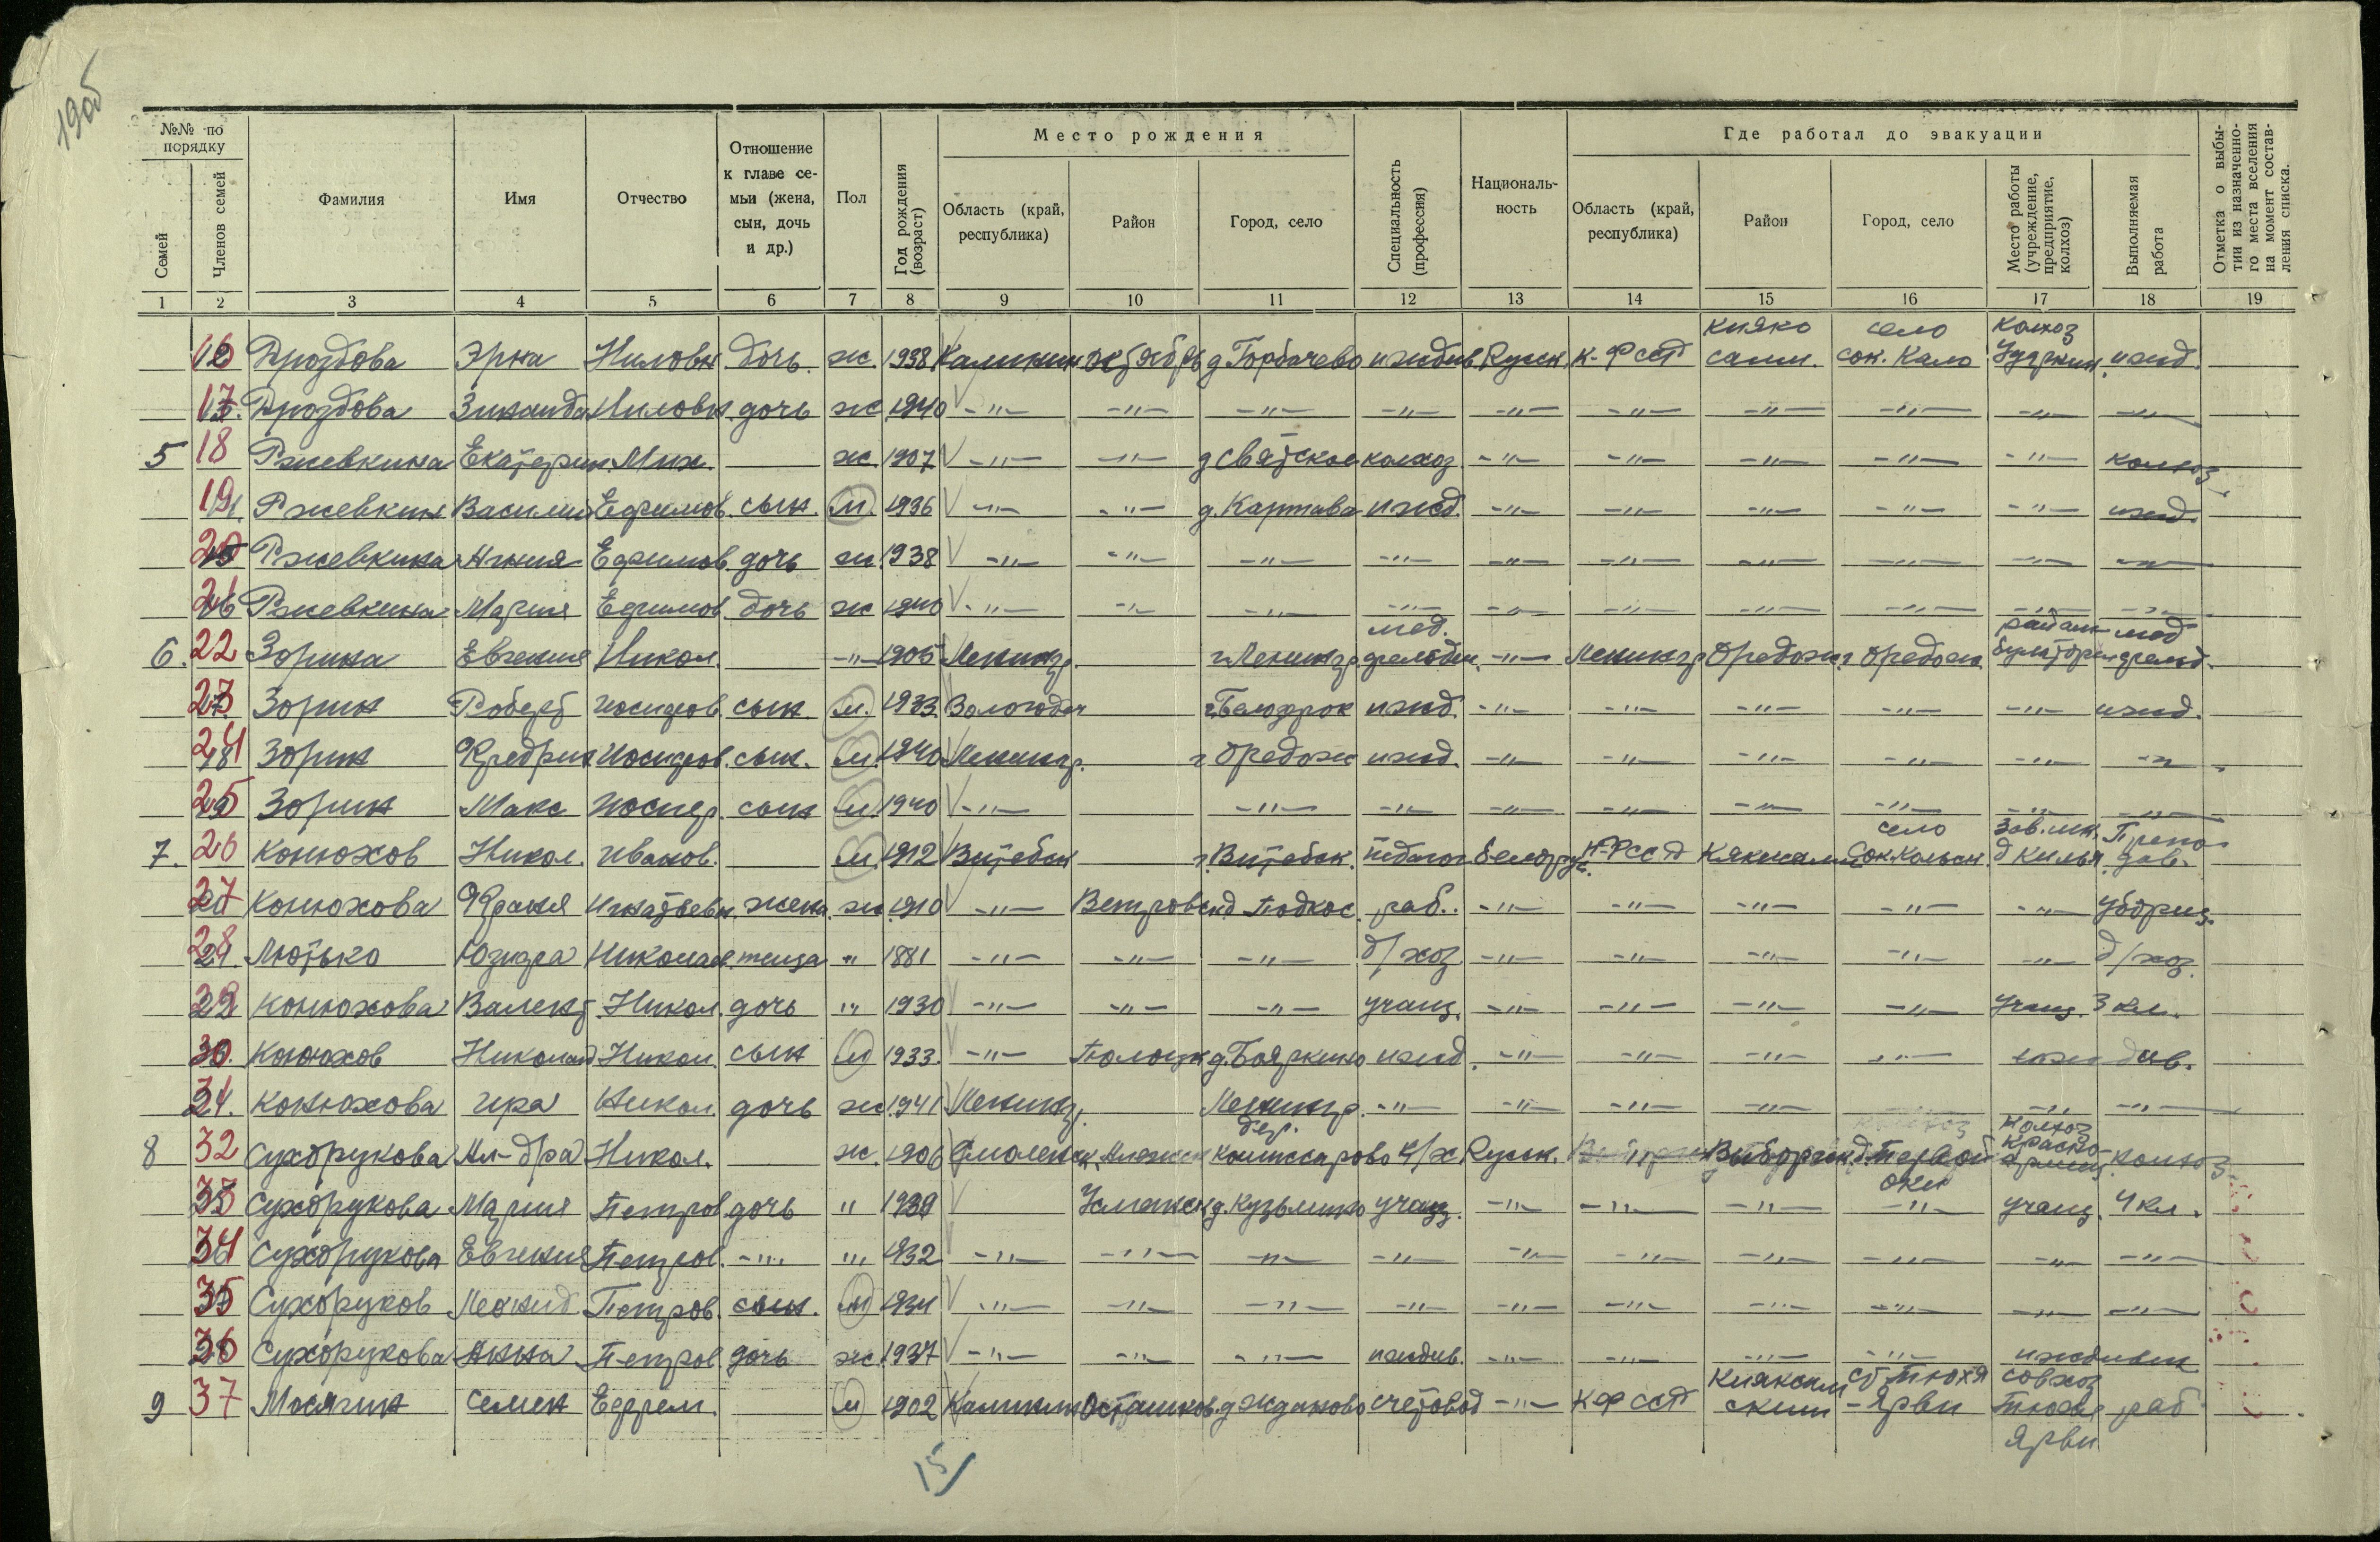 19об
№№ по порядку
Место рождения
Где работал до эвакуации
Семей
Членов семей
Фамилия
Имя
Отчество
Отношение к главе се-
мьи (жена,
сын, дочь
и др.)
Пол
Год рождения (возраст)
Область (край, республика)
Район
Город, село
Специальность (профессия)
Националь-
ность
Область (край, республика)
Район
Город, село
Место работы (учреждение, предприятие, колхоз)
Выполняемая работа
Отметка о выбы-
тии из назначенно-
го места вселения
на момент состав-
ления списка.
1 2 3 4 5 6 7 8 9 10 11 12 13 14 15 16 17 18 19
16 Дроздова Эрна Ниловн дочь. ж. 1938 Калинин Октябрь д Горбачево иждив. Русск. К-ФССР село колхоз ижд.
17 Дроздова Зинаида Нилови. дочь ж 1940 -"- -"- -"- -"- -"- -"- -"- -"- -"- -"-
5 18 Ржевкина Екатерин. Мих. ж. 1907 -"- -"- д Святское колхоз -"- -"- -"- -"- -"- колхоз
19 Ржевкин Василий Ефимов. сын. м. 1936 -"- -"- д. Картава ижд. -"- -"- -"- -"- -"- ижд.
20 Ржевкина Ефимов. дочь ж. 1938 -"- -"- -"- -"- -"- -"- -"- -"- -"- -"-
21 Ржевкина Мария Ефимов. дочь ж 1940 -"- -"- -"- -"- -"- -"- -"- -"- -"- -"-
6. 22 Зорина Евгения Никол. -"- 1905 Ленингр. г. Ленингр. мед. -"- Ленингр Оредеж. г Оредеж.
23 Зорин Роберт Иосифов. сын. м. 1933 Вологодск ижд. -"- -"- -"- -"- -"- ижд.
24 Зорин Фредрик Иосифов. сын. м. 1940 Ленингр. г Оредеж ижд. -"- -"- -"- -"- -"- -"-
25 Зорин Макс Иосиф. сын м. 1940 -"- -"- -"- -"- -"- -"- -"- -"- -"-
7. 26 Конюхов Никол. Иванов. м. 1912 Витебск г. Витебск. педагог. Белорус. К-ФССР село Зав. шк. Препо-
дав.
27 Конюхова Франя Игнатьевн. жена. ж. 1910 -"- Ветровск д. Подкос. раб. -"- -"- -"- -"- -"- уборщ.
28 Лютько Юзефа Николаев. теща " 1881 -"- -"- -"- д/хоз. -"- -"- -"- -"- -"- д/хоз.
29 Конюхова Валент. Никол. дочь " 1930 -"- -"- -"- учащ. -"- -"- -"- -"- учащ. 3 кл.
30. Конюхов Николай Никол. сын м 1933. -"- Полоцк д. Бояркино ижд. -"- -"- -"- -"- иждив.
31. Конюхова Ира Никол. дочь ж. 1941 Ленингр. Ленингр. -"- -"- -"- -"- -"- -"-
8 32 Сухорукова Ал-дра Никол. ж. 1906 Смоленск. дер. Комиссарово Русск. Выборгск. колхоз Красно-
армеец. колхоз
33 Сухорукова Мария Петров. дочь " д. Кузьмино учащ. -"- -"- -"- -"- учащ. 4 кл.
34 Сухорукова Евгения Петров. -"- " 1932 -"- -"- -"- -"- -"- -"- -"- -"- -"- -"-
35 Сухоруков Леонид Петров. сын. м 1934 -"- -"- -"- -"- -"- -"- -"- -"- -"- -"-
36 Сухорукова Анна Петров. дочь ж 1937 -"- -"- -"- иждив. -"- -"- -"- -"- иждивен
9 37 Мосягин Семен Ефрем. м 1902 Калинин Осташков. д Жданово счетовод -"- КФССР Тюхя
-Ярви совхоз
Тюхя
Ярви раб
15